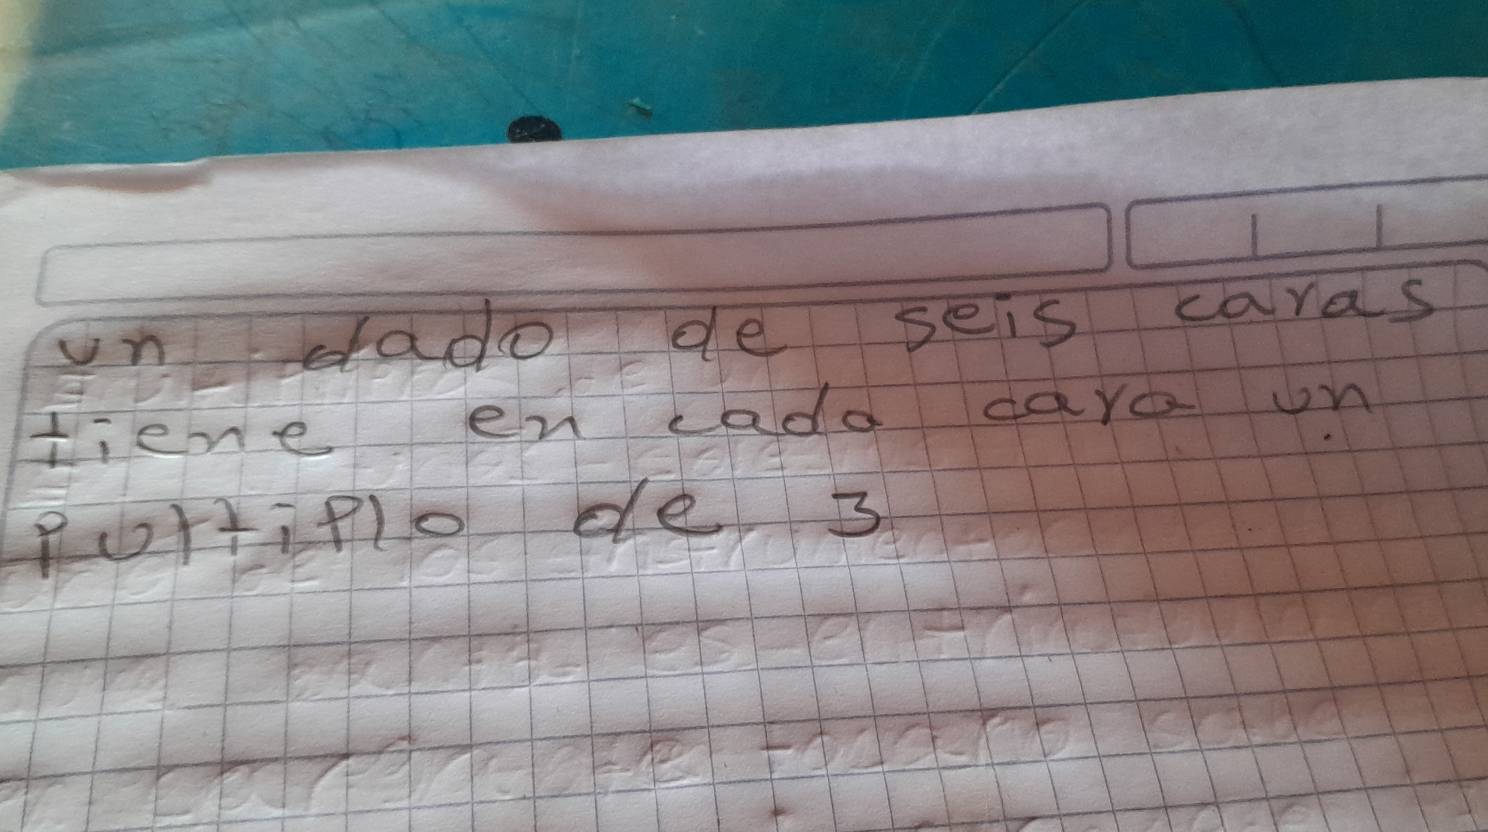 un dado de seis caras
tiene en cada cara un
pultiplo de 3